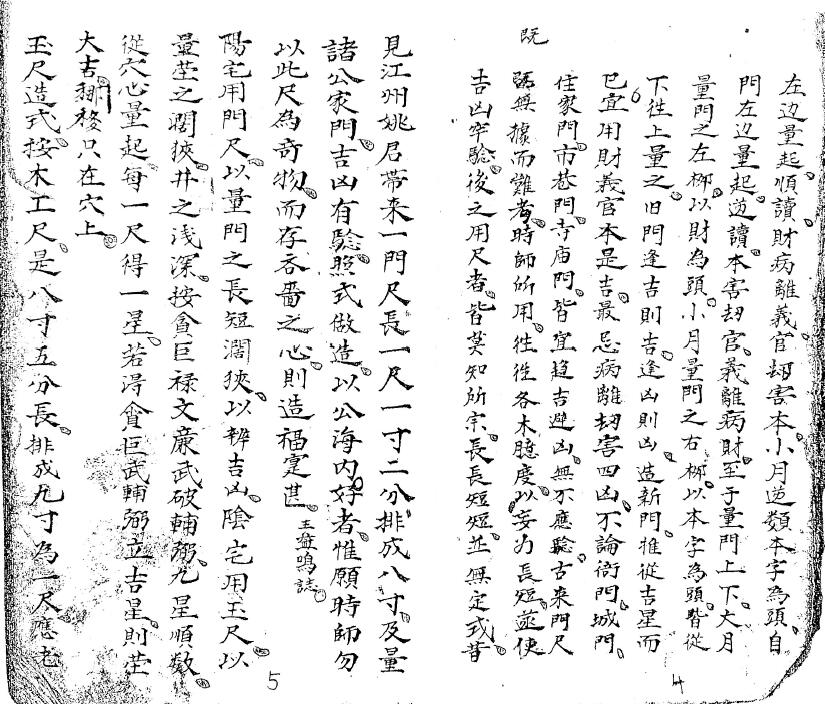 左边量起順讀財病離義官刼害本小月逆類本字為頭自
門左边量起逆讀本害刼官義離病財至于量門上下大月
量門之左栁以財為頭小月量門之右栁以本字為頭皆從
下徃上量之旧門逢吉則吉逢凶則凶造新門推從吉星而
6
已宜用財義官本是吉最忌病離刼害四凶不論衙門城門
住家門市巷門寺庙門皆宜趋吉避凶無不應驗古来門尺
既
既無據而難考時師所用徃徃各木臆度以妄为長短並使
吉凶罕驗後之用尺者皆莫知所宗長長短短並無定式昔
4
見江州姚君帶来一門尺長一尺一寸二分排成八寸及量
諸公家門吉凶有驗照式做造以公海内好者惟願時師勿
以此尺為奇物而存吝嗇之心則造福寔甚 王益鳴誌
陽宅用門尺以量門之長短濶狹以辨吉凶陰宅用玉尺以
量茔之濶狹井之浅深按貪巨禄文廉武破輔弼九星順数
從穴心量起每一尺得一星若得貪巨武輔弼立吉星則茔
大吉 只在穴上
玉尺造式按木工尺是八寸五分長排成九寸為一尺應老
5